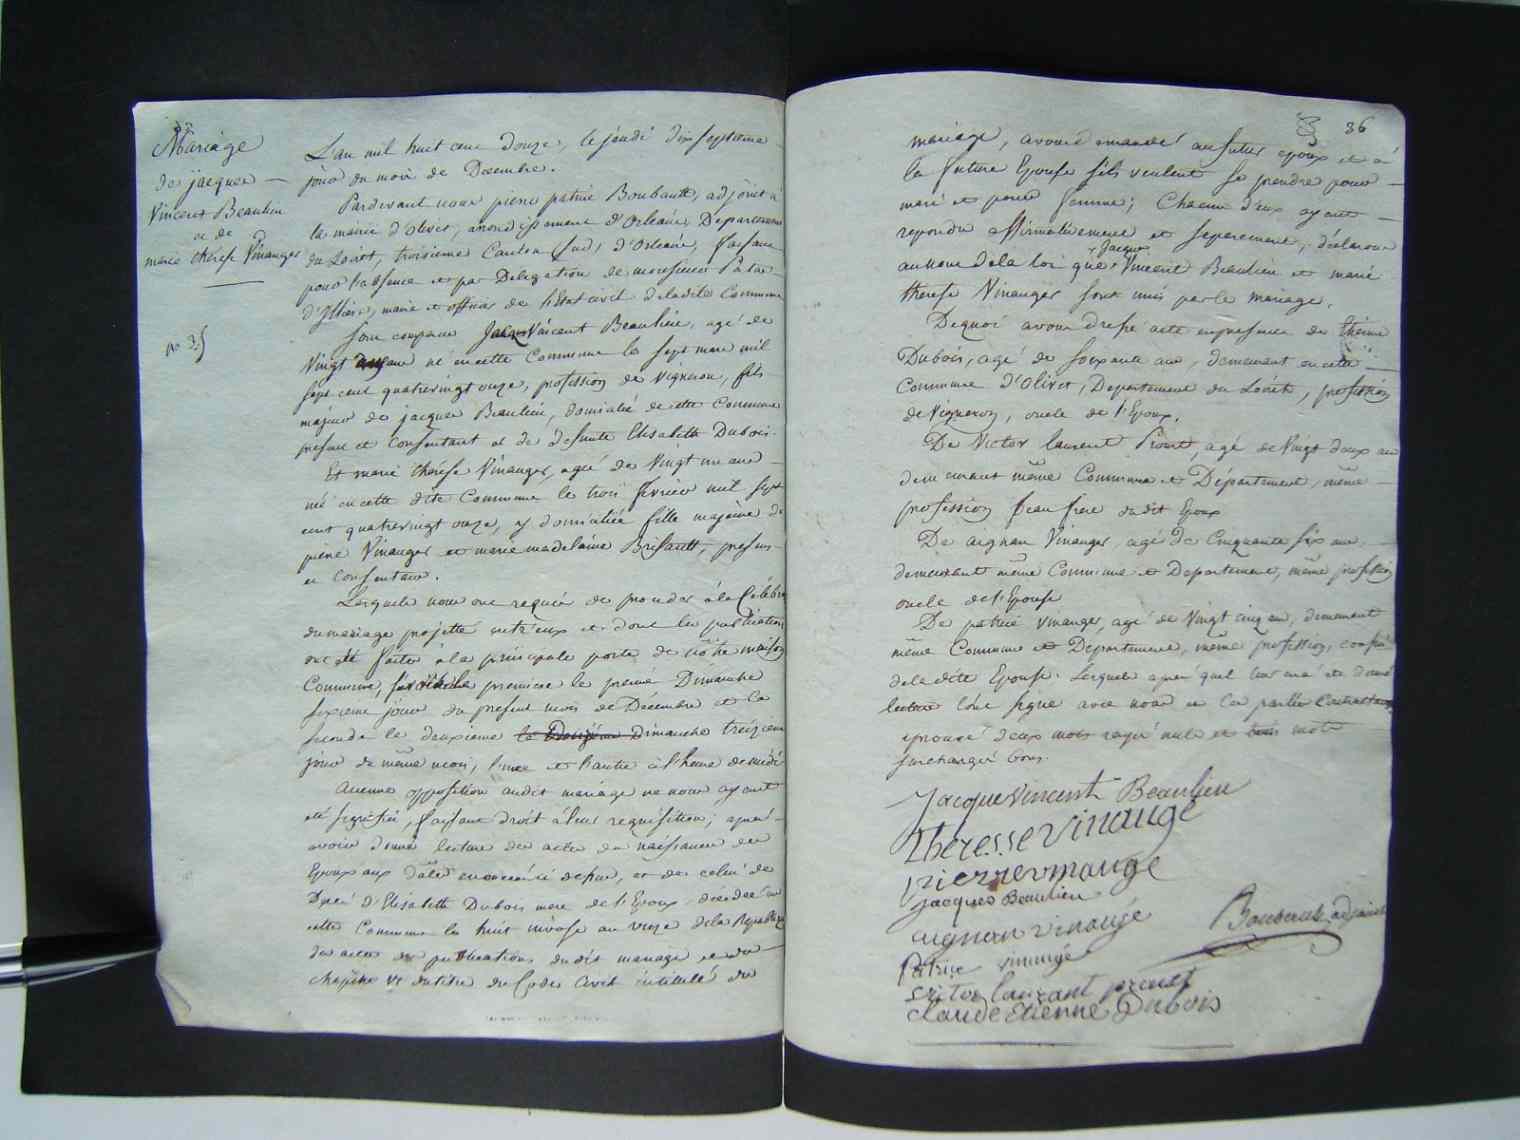 Mariage
de jacque
Vincent Beaulieu
et de
marie thérèse Vinauger
no 35
L'an mil huit cent Douze, le jeudi dix septieme
jour du mois de Decembre.
Pardevant nous pierre patrice Boubault, adjoint à
la mairie d'olivet, arrondissement d'Orleans, Departement
du Loiret, troisieme Canton (Sud) d'Orleans, faisant
pour l'absence et par Delegation de monsieur
d'Illiers, maire et officier de l'Etat civil de ladite Commune
Sont comparu Vincent Beaulieu, agé de
Vingt un ans né en cette Commune le sept mars mil
sept cent quatrevingt onze, profession de Vigneron, fils
majeur de jacque Beaulieu, domicilié de cette Commune
present et Consentant et de défunte Elisabeth Dubois.
Et marie thérèse Vinauger, agée de Vingt un ans
née en cette dite Commune le trois fevrier mil sept
cent quatrevingt onze, y domiciliée fille majeure de
pierre Vinauger et marie madelaine Brisault, presens
et Consentans.
Lesquels nous ont requis de proceder à la Célébr
du mariage projetté entr'eux et dont les publications
ont été faites à la principale porte de nôtre maison
Commune, premiere le premier Dimanche
sixieme jour du present mois de Décembre et la
seconde le deuxieme le Dimanche treizieme
jour de même mois, l'une et l'autre à l'heure de midi
Aucune opposition audit mariage ne nous ayant
été signifiée, faisant droit à leur requisition; après
avoir donné lecture des actes de naissance des
Epoux aux dates enoncées de leur, et de celui de
Décè d'Elisabeth Dubois mere de l'Epoux, décédée en
cette Commune le huit nivose an onze de la Republique
des actes de publications dudit mariage et du
chapitre VI du titre du Code Civil intitulé du
36
mariage, avons demandé au futur epoux et à
la future Epouse s'ils veulent se prendre pour
mari et pour femme; Chacun d'eux ayant
repondu affirmativement et separement, déclarons
jacque
au nom de la loi que Vincent Beaulieu et marie
therese Vinauger sont unis par le mariage.
De quoi avons dressé acte en presence de Etienne
Dubois, agé de soixante ans, demeurant en cette
Commune d'Olivet, Departement du Loiret, profession
de Vigneron, oncle de l'Epoux.
De Victor laurent Prout, agé de Vingt deux ans
demeurant même Commune et Département, même
profession beau frere dudit Epoux
De aignan Vinauger, agé de Cinquante six ans,
demeurant même Commune et Departement, même profession
oncle de l'Epouse
De patrice vinauger, agé de Vingt cinq ans, demeurant
même Commune et Departement, même profession, cousin
de la dite Epouse. Lesquels après qu'il leur en a été donné
lecture l'ont signé avec nous et les parties Contractantes
aprouvé deux mots rayés nuls et trois mots
surchargés bons.
Jacque vincent Beaulieu
theresse vinauge
pierre vinauge
jacques Beaulieu
aignan vinauge
Boubault, adjoint
Patrice vinauge
victor laurant prout
Claude Etienne Dubois